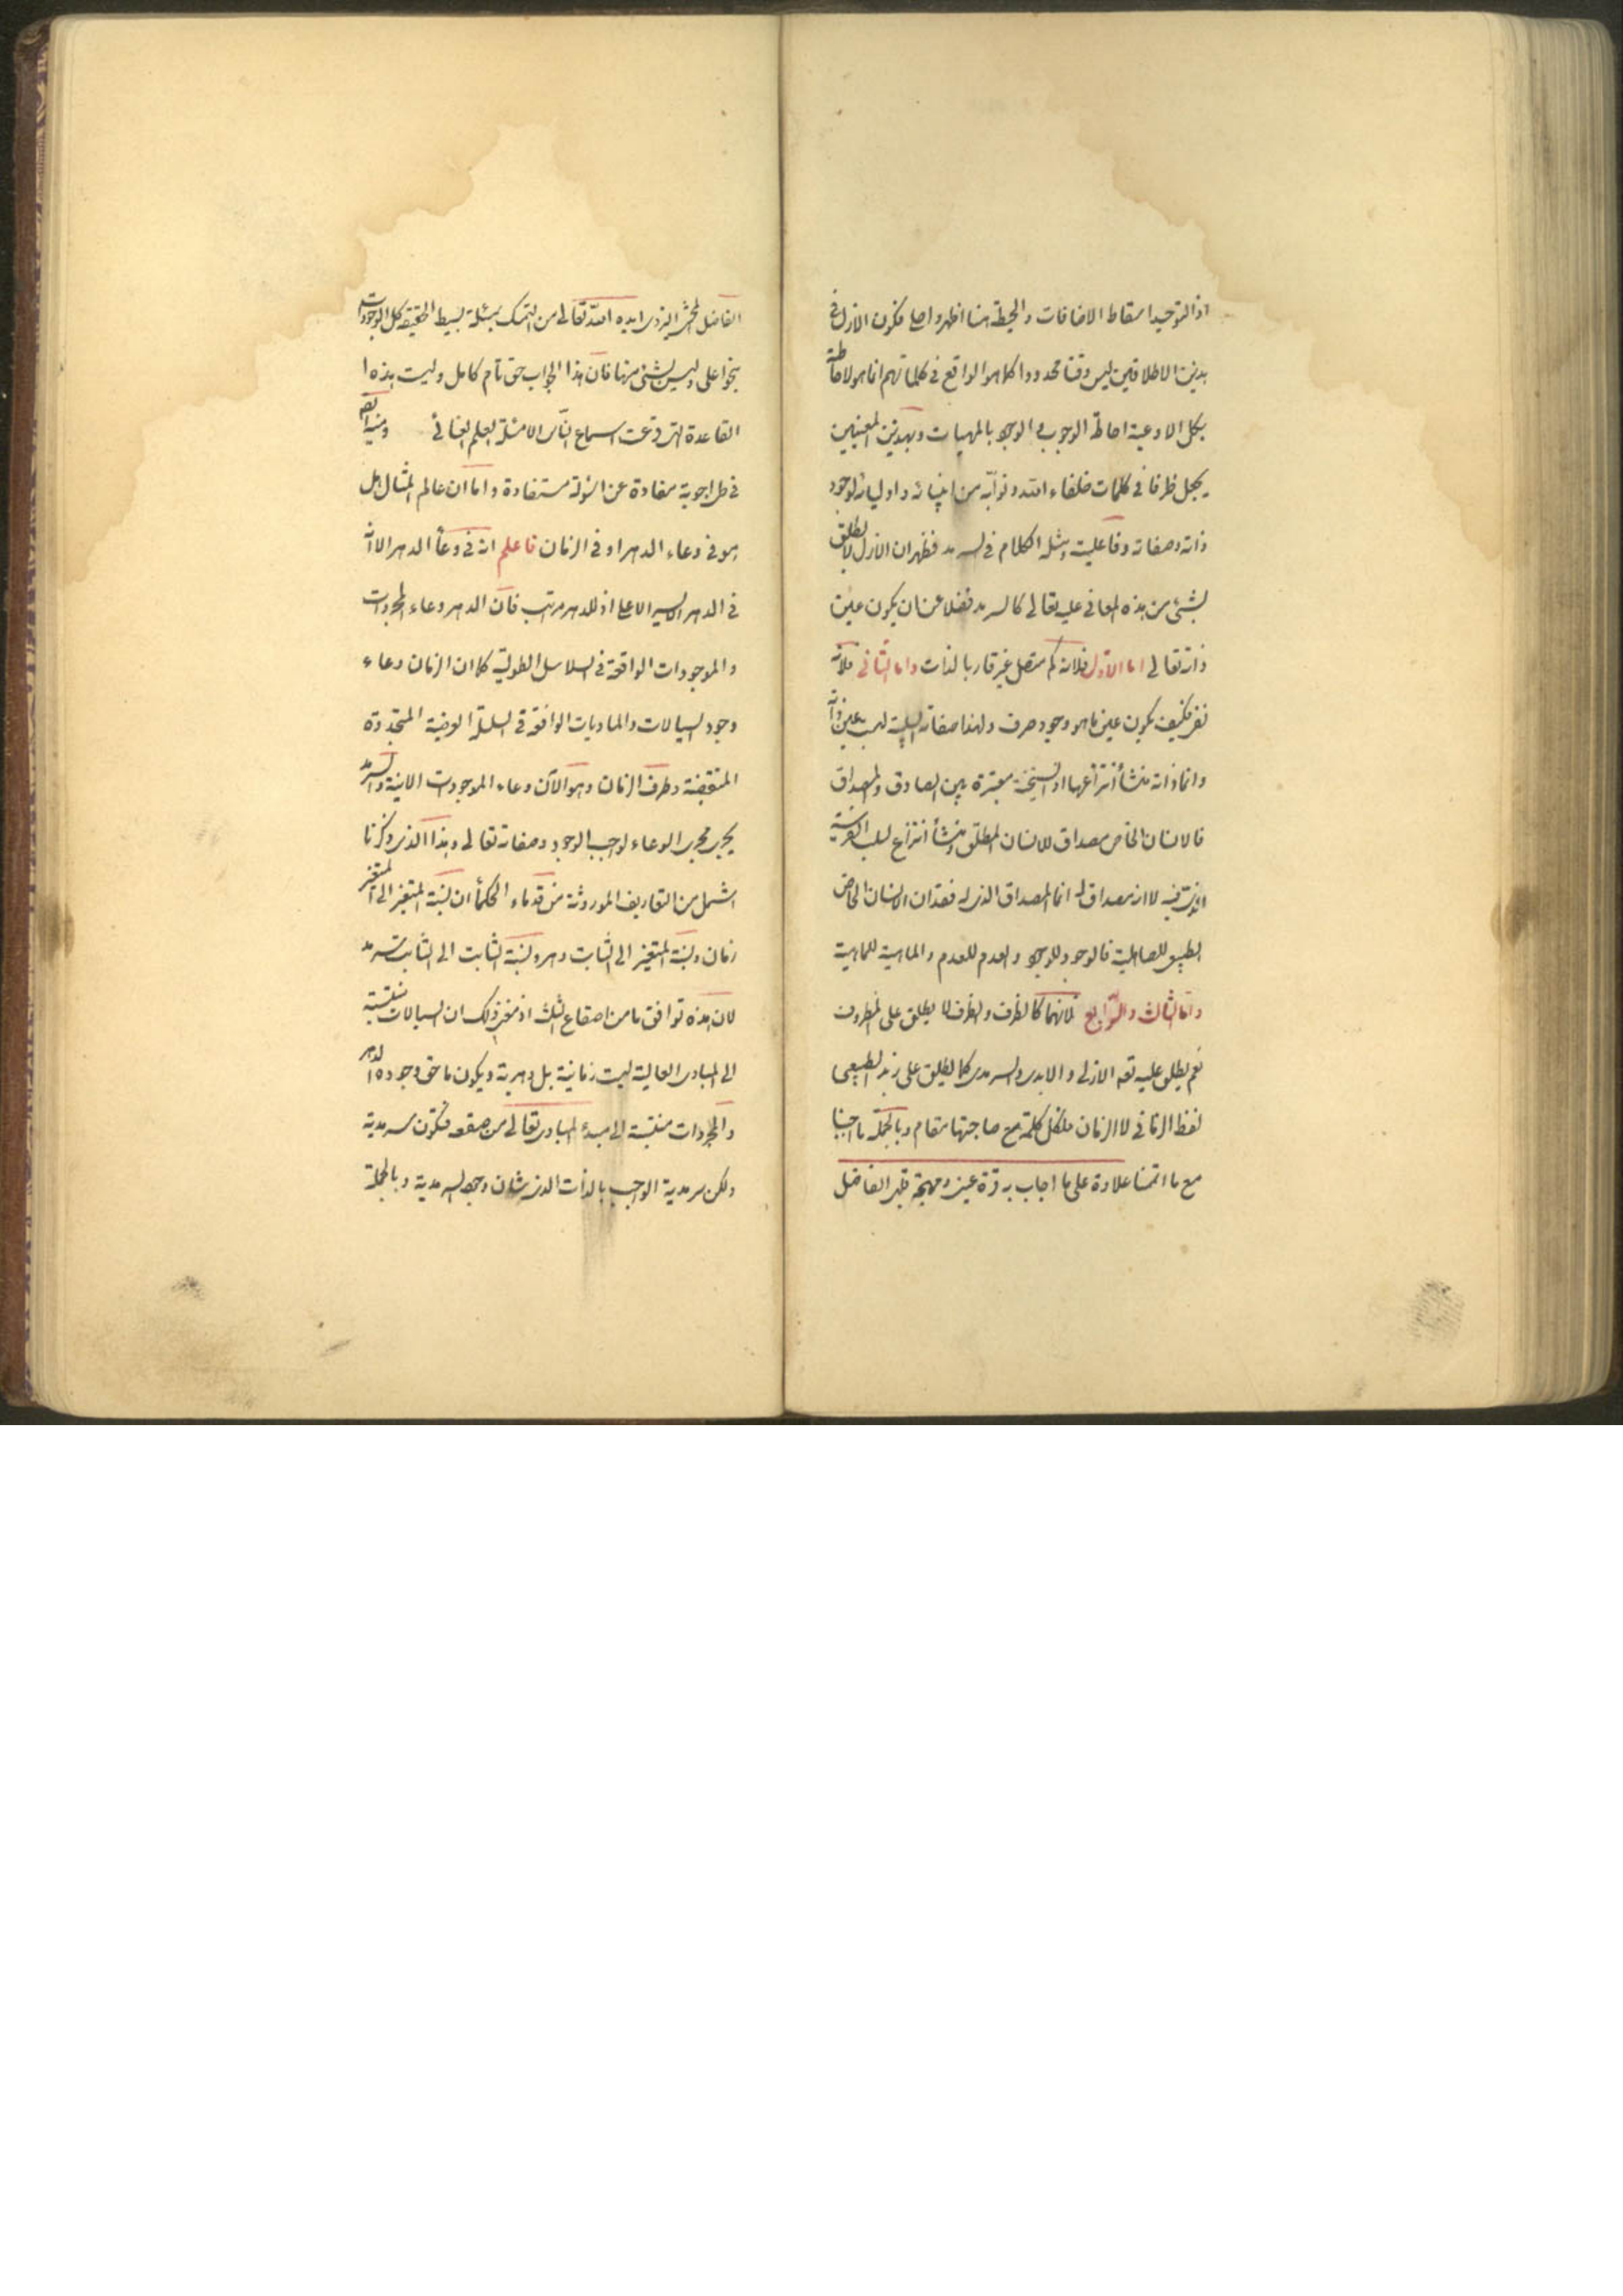 اذ التوحيد اسقاط الاضافات والحيطة هنا اظهر واجلى فكون الازل فى
بذين الاطلاقين ليس وقتا محدودا كما هو الواقع فى كلماتهم انما هو لاحاطته
بكل الاوعية احاطة الوجوب فى الوجود بالمهيات وبهذين المعنيين
يجعل ظرفا فى كلمات خلفاء الله ونوابه من انبيائه واوليائه لوجود
ذاته وصفاته وفاعليته ومثله الكلام فى السرمد فظهر ان الازل لا يطلق
بشئ من هذه المعانى عليه تعالى كالسرمد فضلا عن ان يكون عين
ذاته تعالى اما الاول فلانه كم متصل غير قار بالذات واما الثانى فلانه
نفى فكيف يكون عين ما هو وجود صرف ولهذا صفاته السلبية ليست عين ذاته
وانما ذاته منشأ انتزاعها اذ السنخية معتبرة بين الصادق والمصداق
فالانسان الخاص مصداق للانسان المطلق ومنشأ انتزاع لسلب الفرسية
فيه لا انه مصداق له انما المصداق الذى له فقدان الانسان الخاص
للصاهلية فالوجود للوجود والعدم للعدم والماهية للماهية
واما الثالث والرابع فلانهما كالظرف والظرف لا يطلق على المظروف
نعم يطلق عليه تعه الازلى والابدى والسرمدى كما يطلق على زيد الطبيعى
لفظ الزمانى لا الزمان فلكل كلمة مع صاحبتها مقام وبالجملة ما اجبنا
مع ما اتممنا علاوة على ما اجاب به قرة عينى ومهجة قلبى الفاضل
الفاضل المحشى اليزدى ايده الله تعالى من التمسك بمسئلة بسيط الحقيقة كل الوجودات
بنحو اعلى وليس بشئ منها فان هذا الجواب حق تام كامل وليست هذه ا
القاعدة التى قرعت اسماع الناس الا مسئلة العلم العنائى
فى طى اجوبة مفادة عن اسئولة مستفادة واما ان عالم المثال هل
هو فى وعاء الدهر او فى الزمان فاعلم انه فى وعاء الدهر الا انه
فى الدهر الايسر الاعلى اذ للدهر مراتب فان الدهر وعاء المجردات
والموجودات الواقعة فى السلاسل الطولية كما ان الزمان وعاء
وجود السيالات والماديات الواقعة فى السلسلة العرضية المتجددة
المنقضية وطرف الزمان وهو الآن وعاء الموجودات الآنية والسرمد
يجرى مجرى الوعاء لواجب الوجود وصفاته تعالى وهذا الذى ذكرنا
اشمل من التعاريف الموروثة من قدماء الحكماء ان نسبة المتغير الى المتغير
زمان ونسبة المتغير الى الثابت دهر ونسبة الثابت الى الثابت سرمد
لان هذه توافق ما من اصقاع تلك اذ مغزى ذلك ان السيالات منتسبة
الى المبادى العالية ليست زمانية بل دهرية ويكون ما حق وجوده الدهر
والمجردات منتسبة الى مبدء المبادى تعالى من صقعه فتكون سرمدية
ولكن سرمدية الواجب بالذات الذى شان وجوده السرمدية وبالجملة